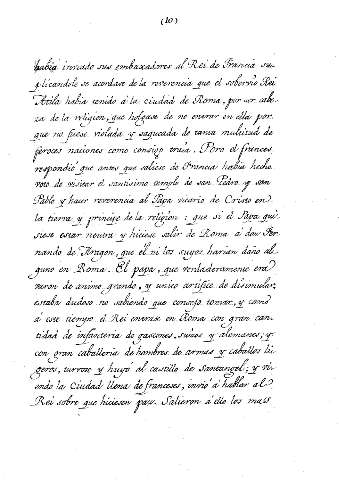 (10)
habia inviado sus embaxadores al Rei de Francia su-
plicandole se acordase de la reverencia que el sobervio Rei
Atila habia tenido á la ciudad de Roma, por ser cabe-
za de la religion, que holgase de no entrar en ella por-
que no fuese violada y saqueada de tanta multitud de
feroces naciones como consigo traia. Pero el frences
respondió que antes que saliese de Francia habia hecho
voto de visitar el santisimo templo de san Pedro y san
Pablo y hacer reverencia al Papa vicario de Cristo en
la tierra y principe de la religion: que si el Papa qui-
siese estar neutro y hiciese salir de Roma á don Fer-
nando de Aragon, que él ni los suyos harian daño al-
guno en Roma. El papa, que verdaderamente era
varon de animo grande, y unico artifice de disimular,
estaba dudoso no sabiendo que consejo tomar, y como
á este tiempo el Rei entrase en Roma con gran can-
tidad de infanteria de gascones, suizos y alemanes, y
con gran caballeria de hombres de armas y caballos li-
geros, turbose y huyó al castillo de Santangel; y vi-
endo la Ciudad llena de franceses, invió á hablar al
Rei sobre que hiciesen paz. Salieron á ello los mas